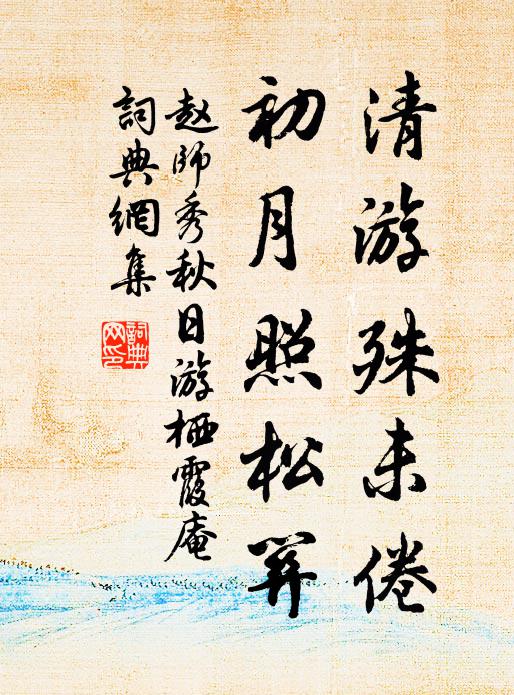 清游殊未倦
初月照松關
趙師秀秋日游栖霞庵
詞典網集
詞典
网印